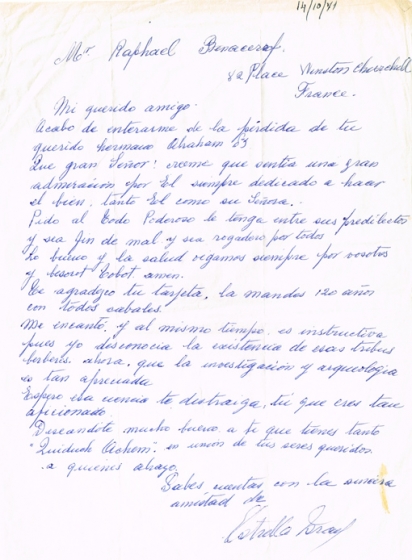 14/10/81
Mr Raphael Benacerraf.
Place Winston Churchill
France.
Mi querido amigo.
Acabo de enterarme de la pérdida de tu
querido hermano Abraham
Que gran Señor! creeme que sentia una gran
admiracion por El siempre dedicado a hacer
el bien, tanto El como su Señora.
Pido al Todo Poderoso le tenga entre sus predilectos
y sea fin de mal y sea rogadero por todos
Lo bueno y la salud oigamos siempre por vosotros
y besorot tobot amen.
Te agradezco tu tarjeta, la mandes 120 años
con todos cabales.
Me encantó, y al mismo tiempo es instructiva
pues yo desconocia la existencia de esas tribus
berberes ahora, que la investigacion y arqueologia
es tan apreciada
Espero esa ciencia te distraiga, tú que eres tan
aficionado.
Deseandote mucho bueno a ti que tienes tanto
"Quiduch Achem". en union de tus seres queridos
a quienes abrazo.
Sabes cuentas con la sincera
amistad de
Estrella